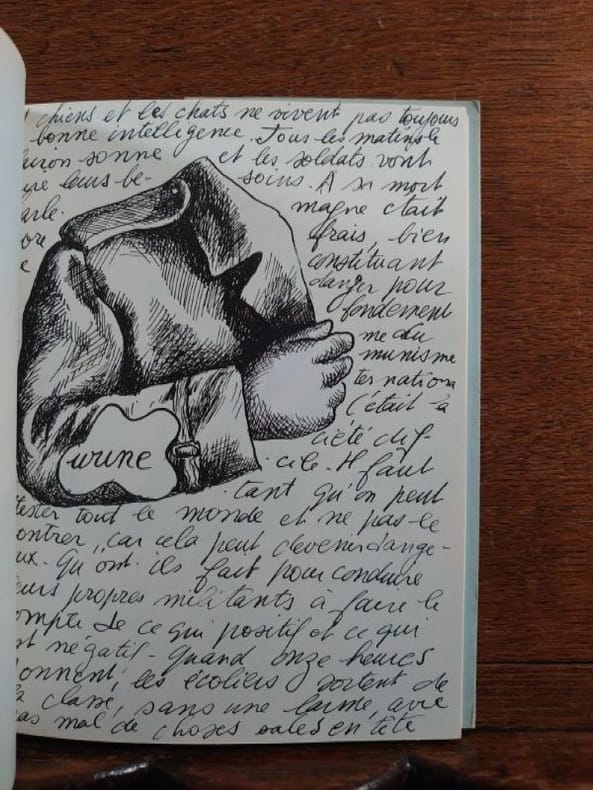 chiens et les chats ne vivent pas toujours
bonne intelligence. Tous les matins le
sonne et les soldats vont
leurs be- soins. A sa mort
magne était
frais, bien
constituant
danger pour
fondement
me du
munisme
ternationa
C'était la
ciété dif-
urine cile. Il faut
tant qu'on peut
tester tout le monde et ne pas le
ontrer, car cela peut devenir dange-
ux. Qu'ont-ils fait pour conduire
urs propres militants à faire le
ompte de ce qui positif et ce qui
st négatif - Quand onze heures
onnent, les écoliers sortent de
la classe, sans une larme, avec
as mal de choses sales en tête